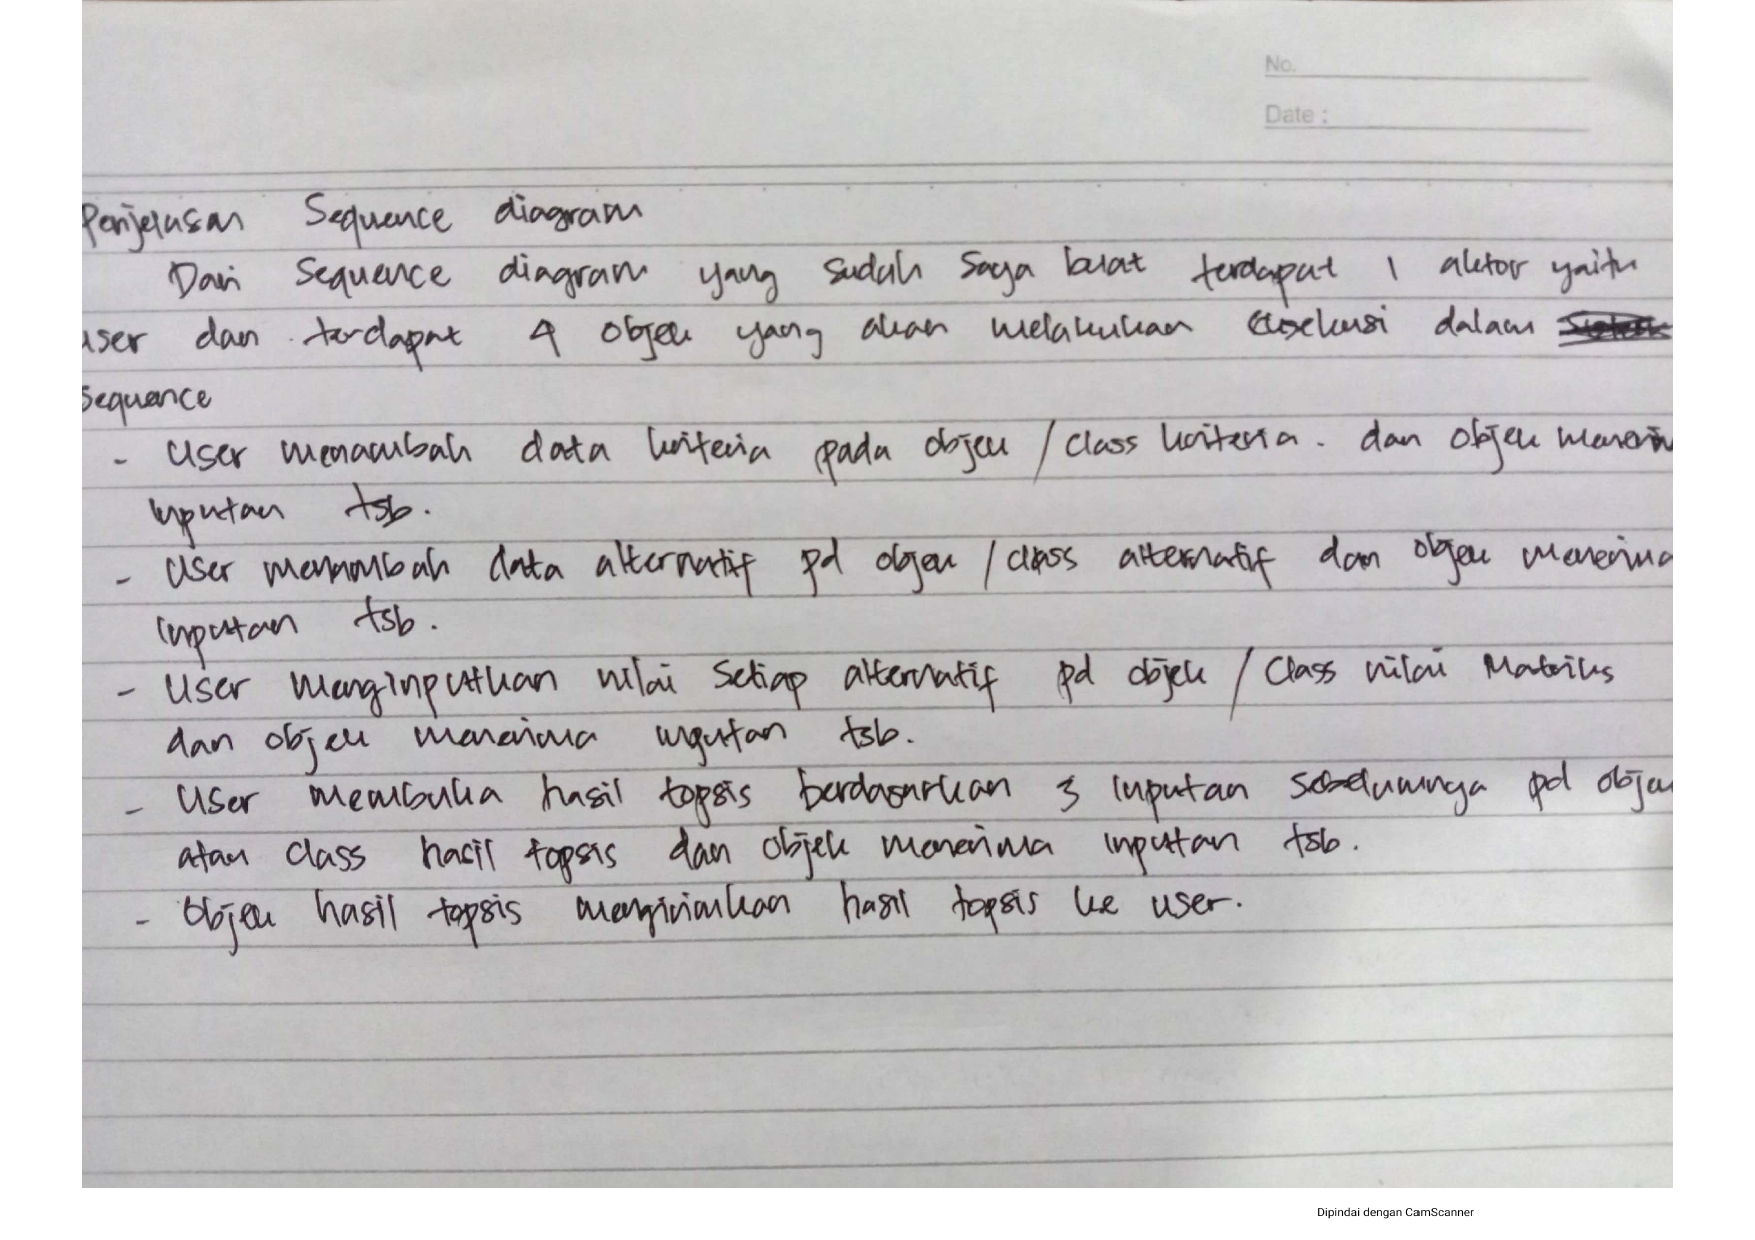 No.
Date :
Penjelasan Sequence diagram
Dari Sequence diagram yang sudah saya buat terdapat 1 aktor yaitu
user dan terdapat 4 objek yang akan melakukan eksekusi dalam
Sequence
- User menambah data kriteria pada objek / class kriteria. dan objek menerim
inputan tsb.
- User menambah data alternatif pd objek / class alternatif dan objek menerima
inputan tsb.
- User menginputkan nilai setiap alternatif pd objek / Class nilai Matriks
dan objek menerima inputan tsb.
- User membuka hasil topsis berdasarkan 3 inputan sebelumnya pd objek
atau class hasil topsis dan objek menerima inputan tsb.
- Objek hasil topsis mengirimkan hasil topsis ke user.
Dipindai dengan CamScanner